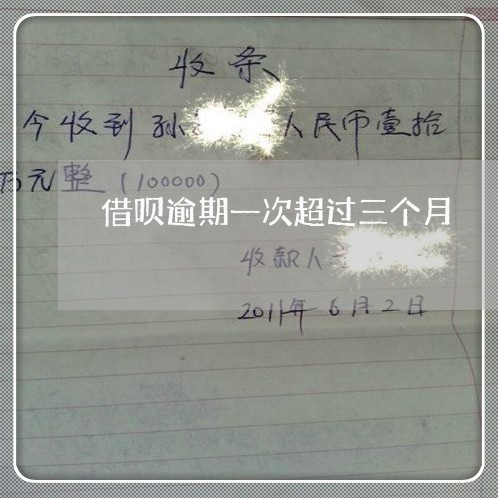 收条
今收到 孙 人民币壹拾
万元整（100000）
借呗逾期一次超过三个月
收款人
2011年6月2日